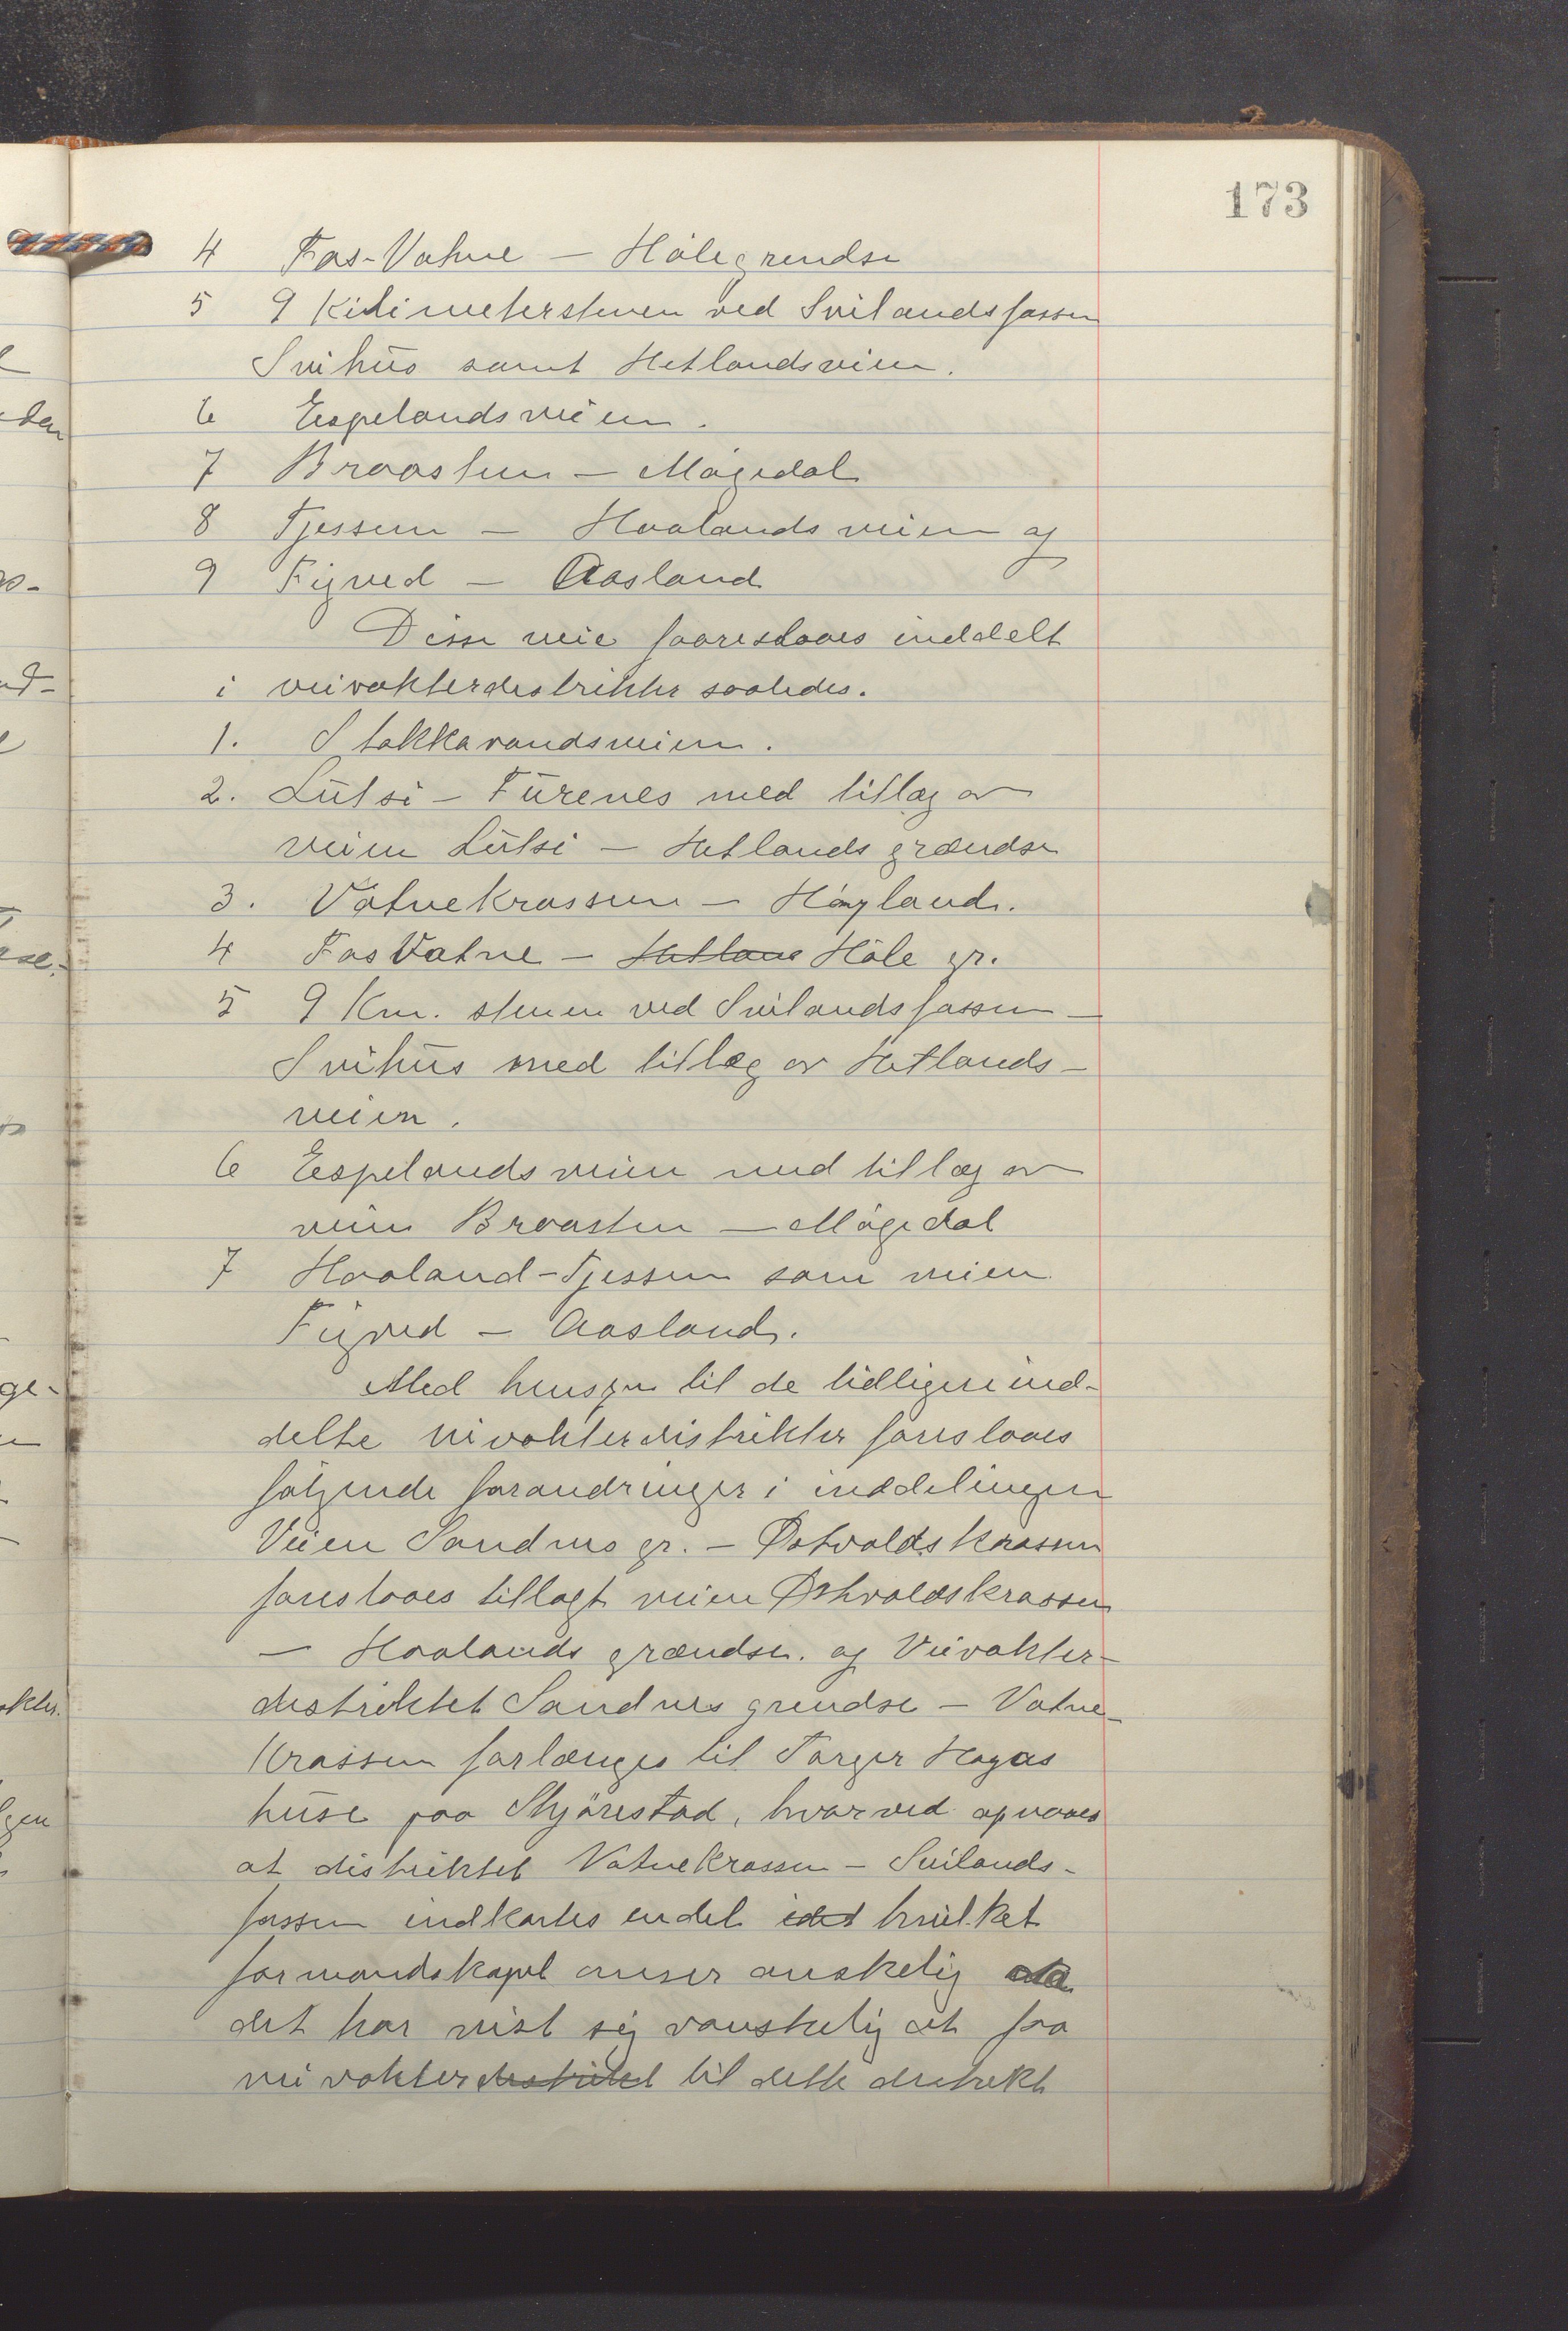 173
4 Fos-Vatne – Høle grendse
5 9 Kilimeterstenen ved Svilandsfossen
Svihus samt Hetlandsveien.
6 Espelandsveien.
7 Braasten – Møgedal
8 Tjessem – Haalandsveien og
9 Figved – Aasland
Disse veie fooreslaaes inddelt
i veivokterdestrikter saaledes.
1. Stokkavandsveien.
2. Lutsi – Furenes med tillæg av
veien Lutsi – Hetlands grændse
3. Vatnekrossen – Høyland.
4 Fos Vatne – Hetland Høle gr.
5 9 Km. stenen ved Svilandsfossen –
Svihus med tillæg av Hetlands-
veien.
6 Espelandsveien med tillæg av
veien Braasten – Møgedal
7 Haaland-Tjessem som veien
Figved – Aasland.
Med hensyn til de tidligere ind-
delte veivokterdistrikter foreslaaes
følgende forandringer i inddelingen
Veien Sandnes gr. – Østvoldskrossen
foreslaaes tillagt veien Østvoldskrossen
– Haalands grændse. og Veivokter-
destriktet Sandnes grendse – Vatne-
krossen forlænges til Torger Hogas
huse paa Skjørestad, hvorved opnaaes
at distriktet Vatnekrossen – Svilands-
fossen indkortes endel idet hvilket
formandskapet anser ønskelig da
det har vist sig vanskelig at faa
veivokterdestriktet til dette distrikt